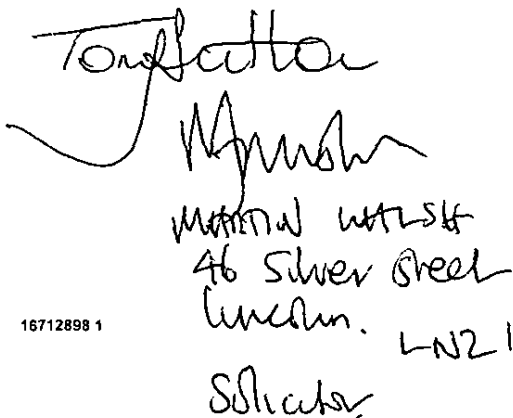 Tony Sutton
MARTIN WALSH
46 Silver Street
Lincoln.
16712898 1
LN2 1
Solicitor